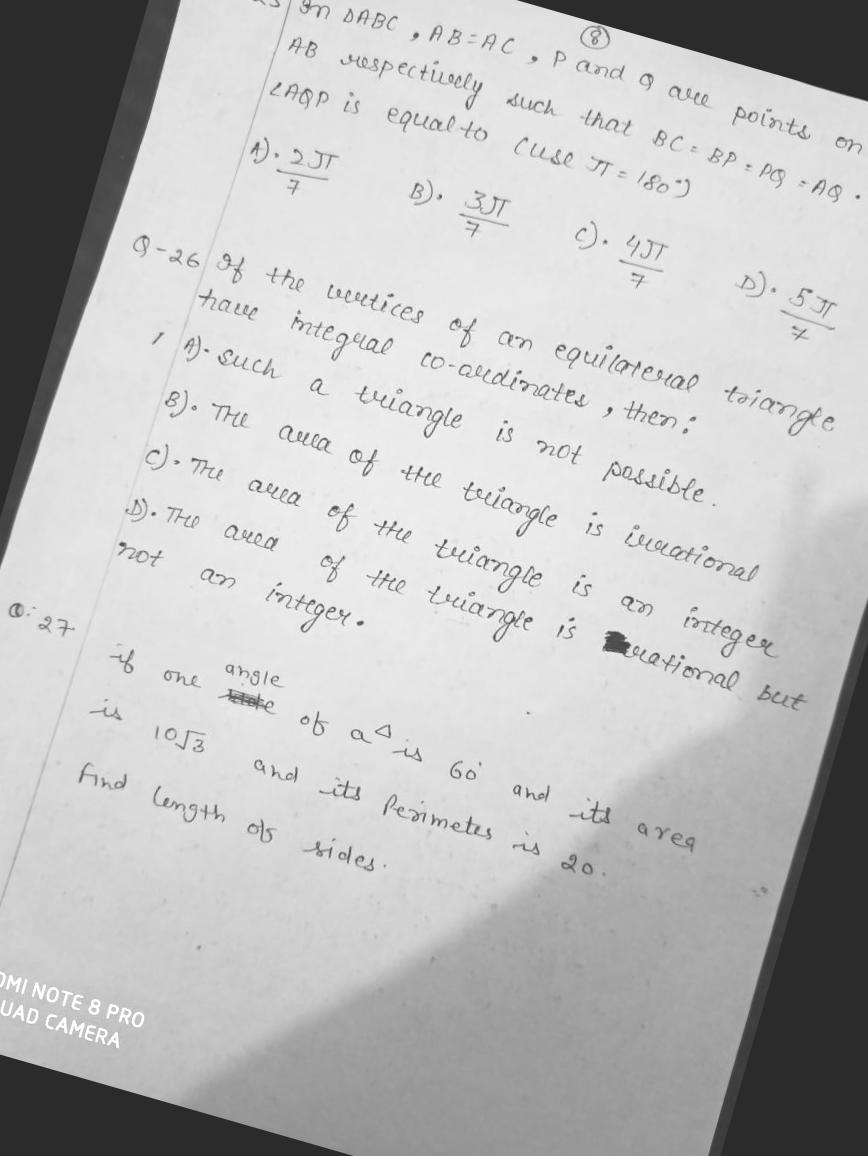 ⑧
In ΔABC, AB=AC, P and Q are points on
AB respectively such that BC=BP=PQ=AQ.
∠AQP is equal to (use π=180°)
A). 2π/7 B). 3π/7 C). 4π/7 D). 5π/7
Q-26 If the vertices of an equilateral triangle
have integral co-ordinates, then:
A). such a triangle is not possible.
B). The area of the triangle is irrational
C). The area of the triangle is an integer
D). The area of the triangle is rational but
not an integer.
Q:27
if one angle of a Δ is 60° and its area
is 10√3 and its Perimetes is 20.
find length of sides.
OMI NOTE 8 PRO
UAD CAMERA